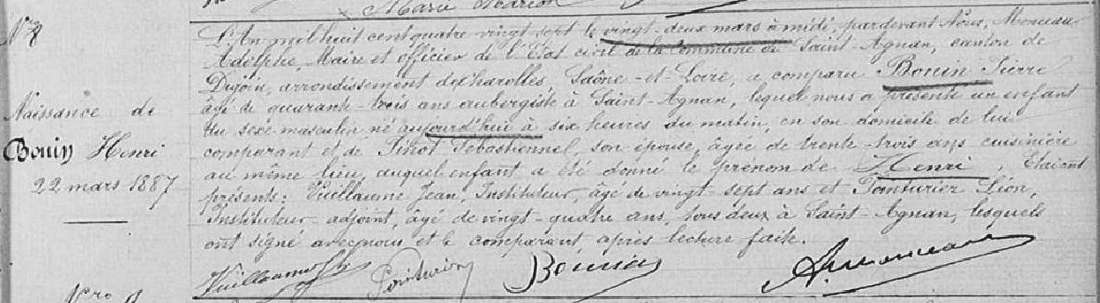 Marie Marion
N° 8
Naissance de
Bouin Henri
22 mars 1887
L'An mil huit cent quatre vingt sept le vingt-deux mars à midi, pardevant Nous, Monceau
Adolphe, Maire et officier de l'Etat civil de la Commune de Saint-Agnan, canton de
Digoin, arrondissement de Charolles, Saône-et-Loire, a comparu Bonin Pierre
âgé de quarante-trois ans aubergiste à Saint-Agnan, lequel nous a présenté un enfant
du sexe masculin né aujourd'hui à six heures du matin, en son domicile de lui
comparant et de Pinot Sébastienne, son épouse, âgée de trente-trois ans cuisinière
au même lieu, auquel enfant a été donné le prénom de Henri, Etaient
présents: Vuillaume Jean, Instituteur, âgé de vingt-sept ans et Ponturier Léon,
Instituteur adjoint, âgé de vingt-quatre ans, tous deux à Saint-Agnan, lesquels
ont signé avec nous et le comparant après lecture faite.
Vuillaume Ponturier Bonin A. Monceau
N°